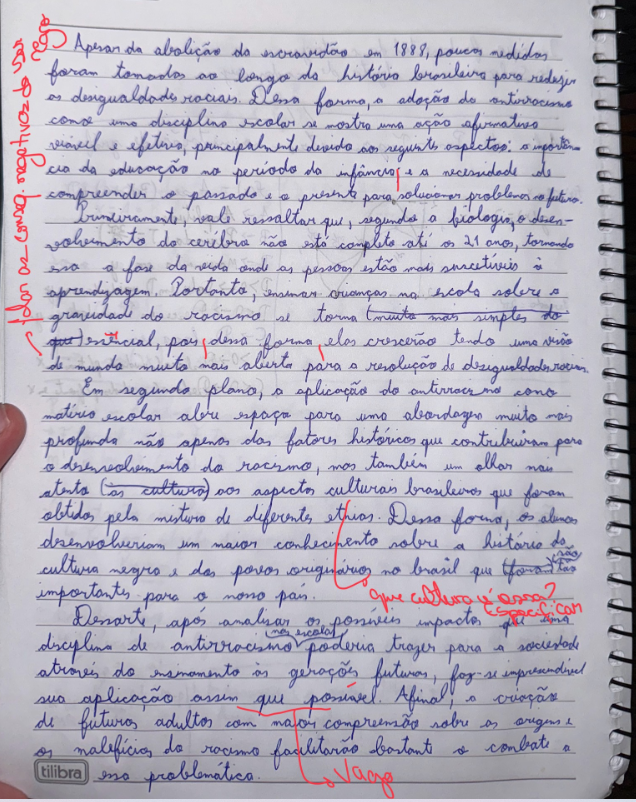 falar as conseq. negativas do ser negro
Apesar da abolição da escravidão em 1888, poucas medidas
foram tomadas ao longo da história brasileira para reduzir
as desigualdades raciais. Dessa forma, a adoção do antirracismo
como uma disciplina escolar se mostra uma ação afirmativa
viável e efetiva, principalmente devido aos seguintes aspectos: a importân-
cia da educação no período da infância e a necessidade de
compreender o passado e o presente para solucionar problemas no futuro.
Primeiramente, vale ressaltar que, segundo a biologia, o desen-
volvimento do cérebro não está completo até os 21 anos, tornando
essa a fase da vida onde as pessoas estão mais suscetíveis à
aprendizagem. Portanto, ensinar crianças na escola sobre a
gravidade do racismo se torna (muito mais simples do
que) essencial, pois dessa forma elas crescerão tendo uma visão
de mundo muito mais aberta para a resolução de desigualdades raciais.
Em segundo plano, a aplicação do antirracismo como
matéria escolar abre espaço para uma abordagem muito mais
profunda não apenas dos fatores históricos que contribuíram para
o desenvolvimento do racismo, mas também um olhar mais
atento (às cultura) aos aspectos culturais brasileiros que foram
obtidos pela mistura de diferentes etnias. Dessa forma, os alunos
desenvolveriam um maior conhecimento sobre a história da
cultura negra e dos povos originários no brasil que (foram) são tão
importantes para o nosso país.
que cultura é essa?
Especificar
Dessarte, após analisar os possíveis impactos que uma
disciplina de antirracismo nas escolas poderia trazer para a sociedade
através do ensinamento às gerações futuras, faz-se imprescindível
sua aplicação assim que possível. Afinal, a criação
de futuros adultos com maior compreensão sobre as origens e
os malefícios do racismo facilitarão bastante o combate a
essa problemática.
Vago
tilibra